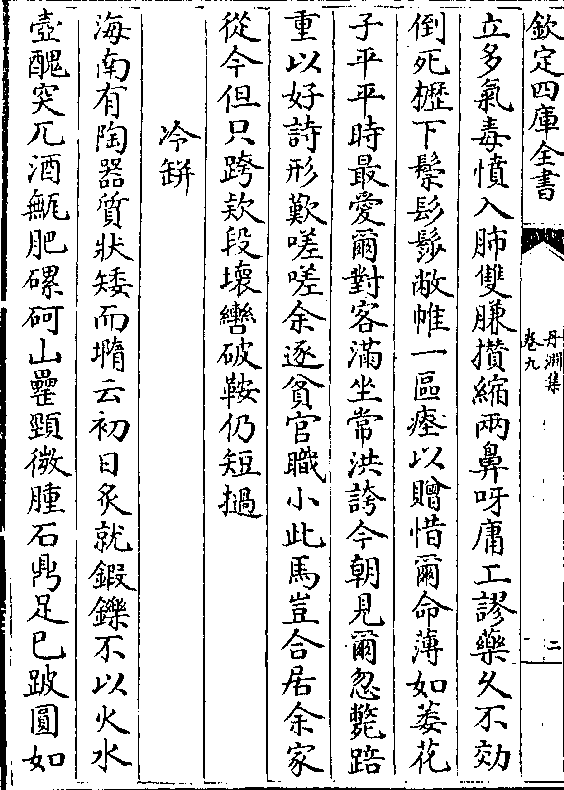 欽定四庫全書
丹淵集
卷九
二
立多氣毒憤入肺雙賺攅縮兩鼻呀庸工謬藥久不効
倒死櫪下鬃髟鬖敝帷一區瘞以贈惜爾命薄如萎花
子平平時最愛爾對客滿坐常洪誇今朝見爾忽斃踣
重以好詩形歎嗟嗟余逐貧官職小此馬豈合居余家
從今但只跨欵段壞轡破鞍仍短撾
冷缾
海南有陶器質狀矮而墮云初日炙就鍜鑠不以火水
壺醜突兀酒甒肥磥砢山罍頸微腫石鼎足已跛圓如